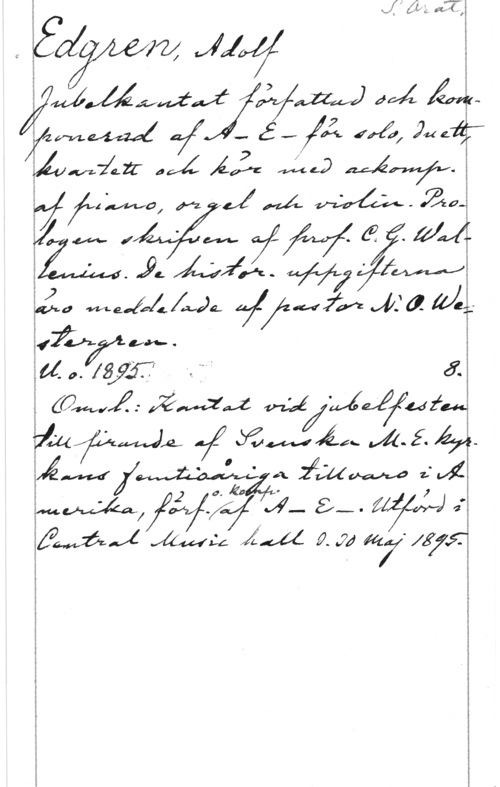 S. Arat.
Edgren, Adolf
Jubelkantat författad och kom-
ponerad af A- E- för solo, duett,
kvartett och kör med ackomp.
af piano, orgel och violin. Pro-
logen skrifven af prof. C. G. Wal-
lenius. De histor. uppgifterna
äro meddelade af pastor N. O. We-
stergren.
U. o. 1895. 8.
Omsl.: Kantat vid jubelfesten
till firande af Svenska M. E. kyr-
kans femtioåriga tillvaro i A-
merika, förf. o. komp. af A- E-. Utförd i
Central Music hall d. 30 maj 1895.